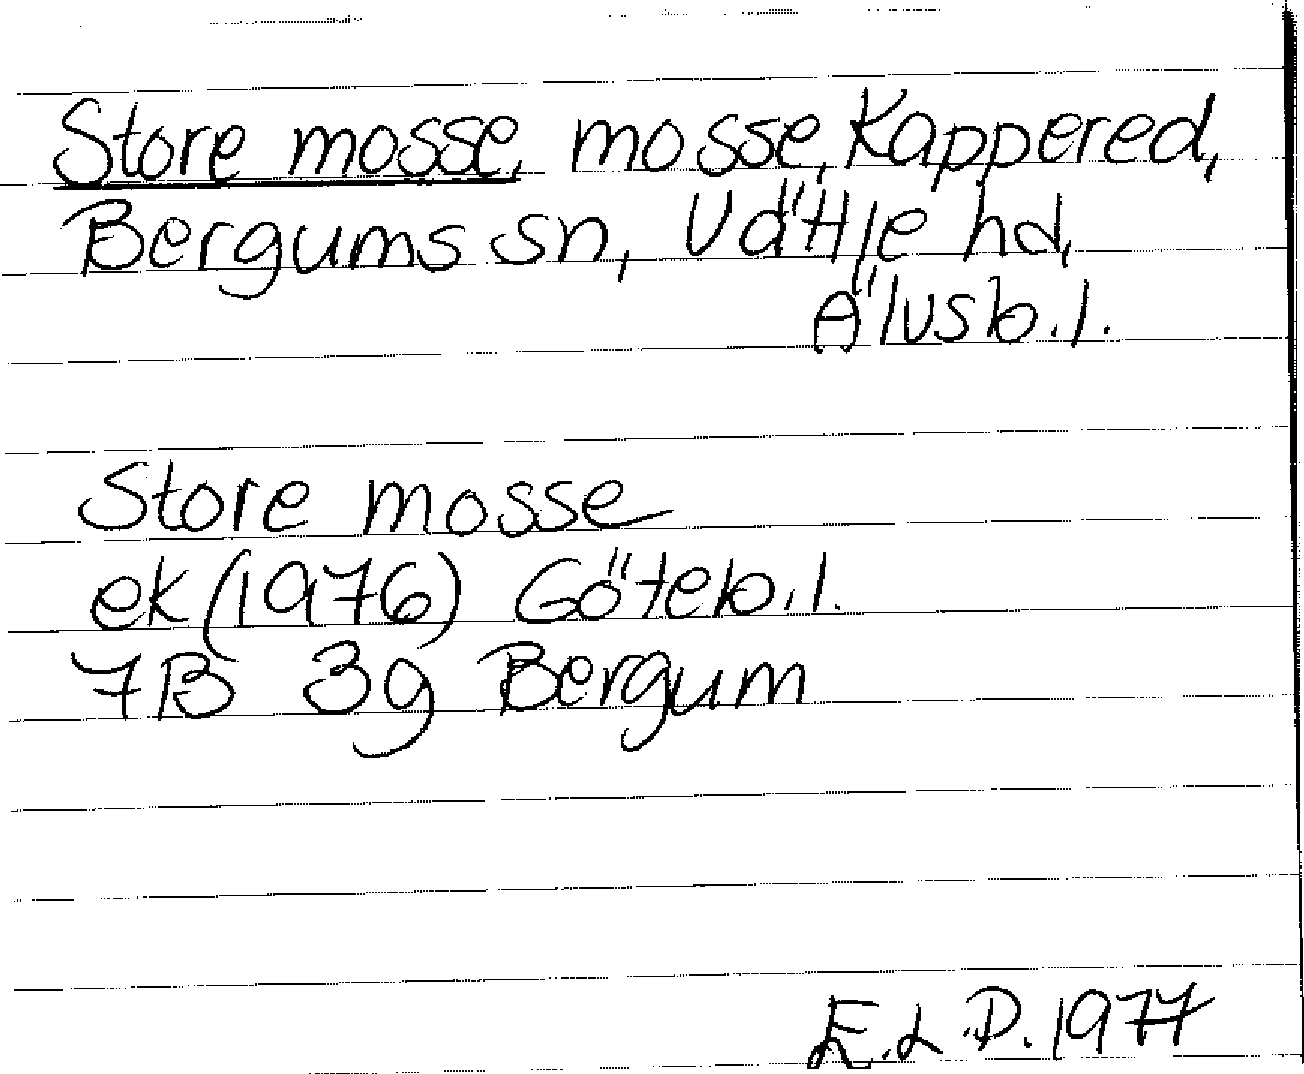 Store mosse, mosse, Kappered,
Bergums sn, Vättle hd,
Älvsb. l.
Store mosse
ek (1976) Göteb. l.
7B 3g Bergum
E. L. D. 1977